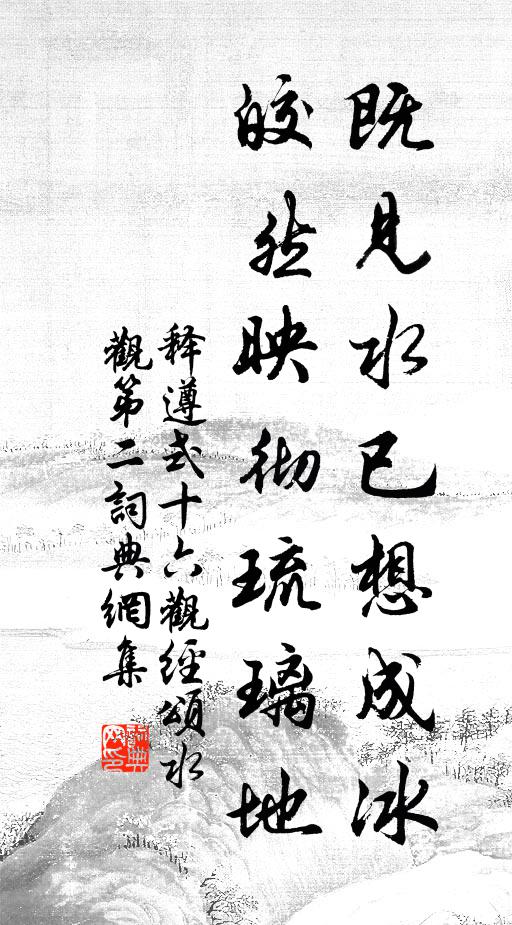 既見水已想成冰
皎然映彻琉璃地
释遵式十六觀經頌水
觀第二詞典網集